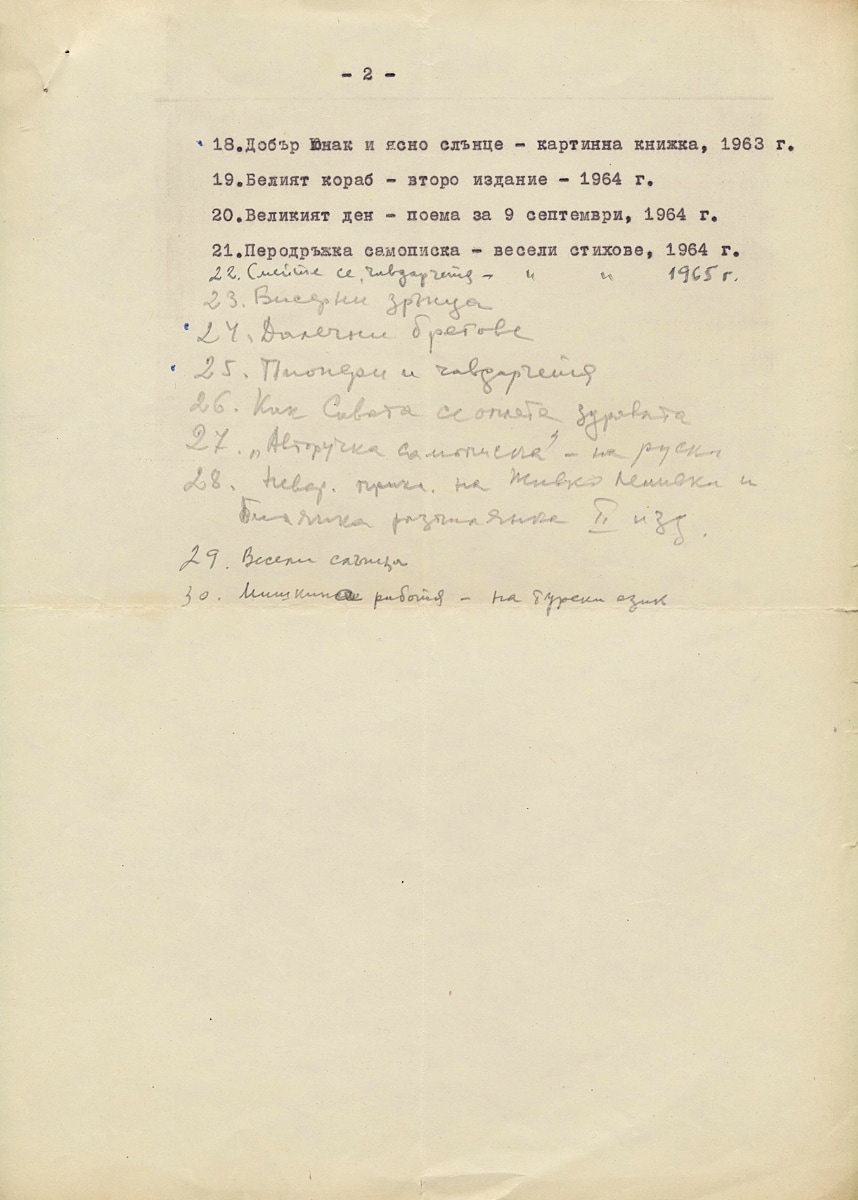 - 2 -
18.Добър Юнак и ясно слънце - картинна книжка, 1963 г.
19.Белият кораб - второ издание - 1964 г.
20.Великият ден - поема за 9 септември, 1964 г.
21.Перодръжка самописка - весели стихове, 1964 г.
22. Смейте се, чавдарчета - " " 1965 г.
23. Бисерни зрънца
24. Далечни брегове
25. Пионери и чавдарчета
26. Как Сивата се оплета здравата
27. „Авторучка самописка" - на руски
28. Невер. прикл. на Живко Ленивко и
Билянка II изд.
29. Весели слънца
30. Мишкина работа - на турски език